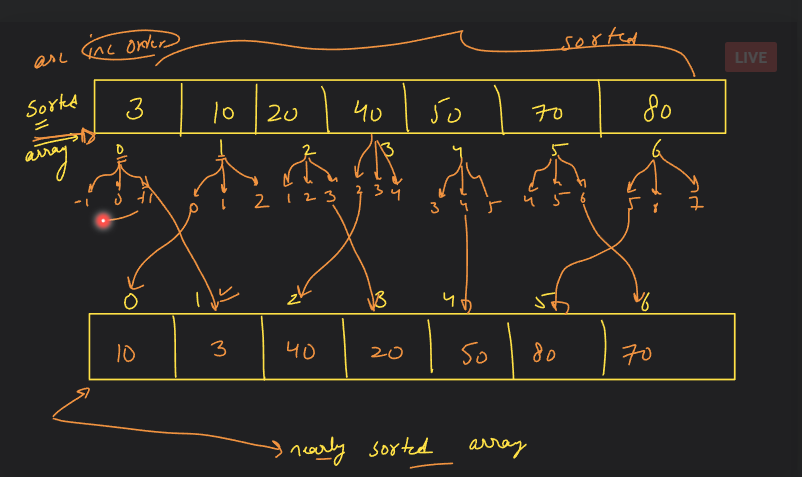 asc inc order sorted
LIVE
sorted array
3 10 20 40 50 70 80
0 1 2 3 4 5 6
-1 0 +1 0 1 2 1 2 3 2 3 4 3 4 5 4 5 6 5 6 7
0 1 2 3 4 5 6
10 3 40 20 50 80 70
nearly sorted array